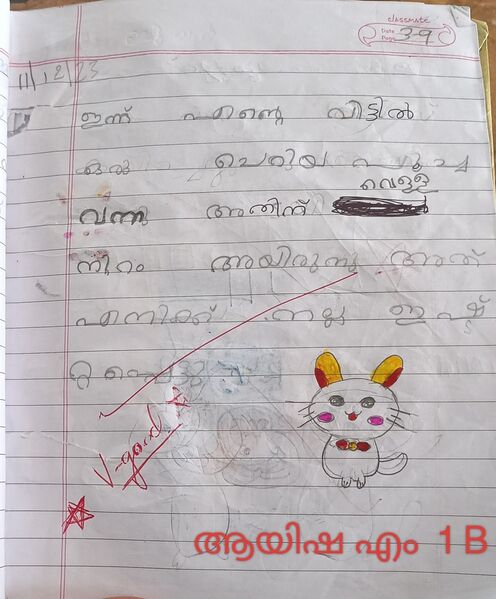 classmate
Date
Page 39
11/12/23
ഇന്ന് എന്റെ വീട്ടിൽ
ഒരു ചെറിയ പൂച്ച
വെള്ള
വന്നു അതിന്
നിറം ആയിരുന്നു അത്
എനിക്ക് നല്ല ഇഷ്ട
പ്പെട്ടു
V-good
ആയിഷ എം 1 B